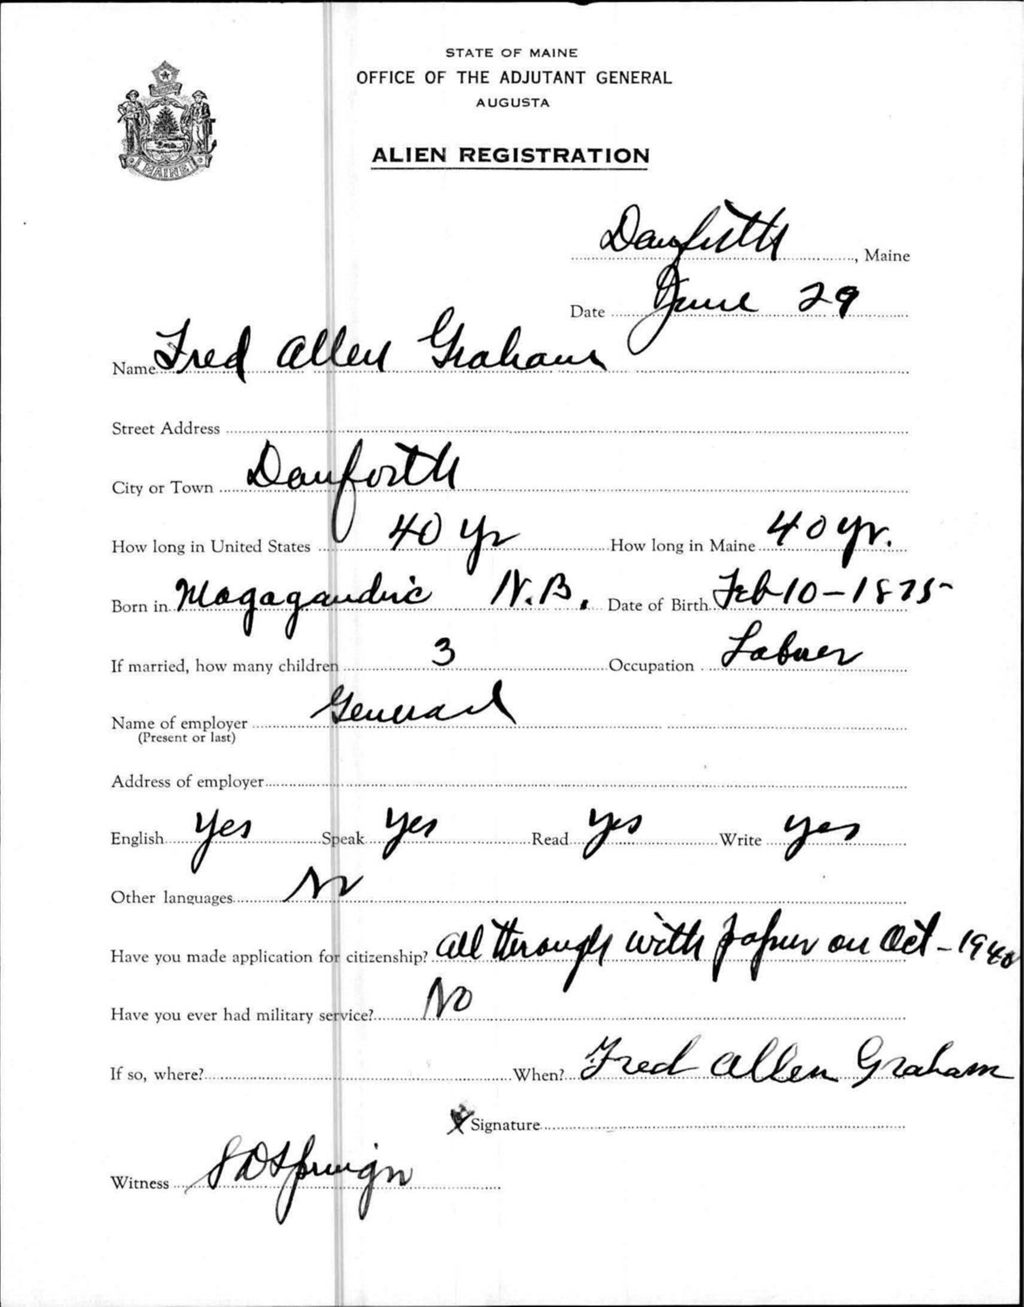 STATE OF MAINE
OFFICE OF THE ADJUTANT GENERAL
AUGUSTA
ALIEN REGISTRATION
MAINE
Danforth, Maine
Date June 29
Name Fred Allen Graham
Street Address
City or Town Danforth
How long in United States 40 yr How long in Maine 40 yr.
Born in Magagaudvic N.B. Date of Birth Feb 10 - 1875
If married, how many children 3 Occupation Laborer
Name of employer General
(Present or last)
Address of employer
English Yes Speak Yes Read Yes Write yes
Other languages No
Have you made application for citizenship? All through with paper on Oct - 1940
Have you ever had military service? No
If so, where? When? Fred Allen Graham
X Signature
Witness S D